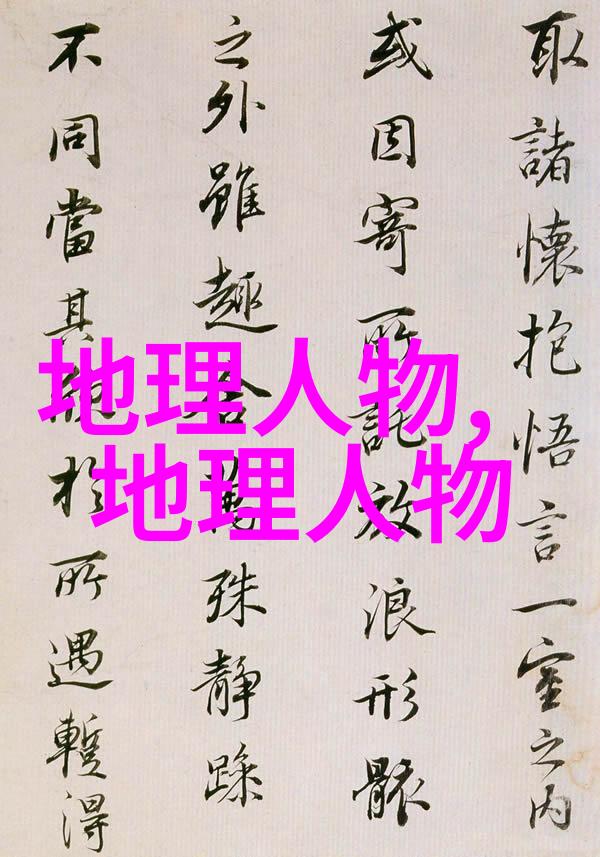 取諸懷抱悟言一室之内
或因寄所託放浪形骸
之外雖趣舍萬殊靜躁
不同當其欣於所遇蹔得
地理人物,
地理人物